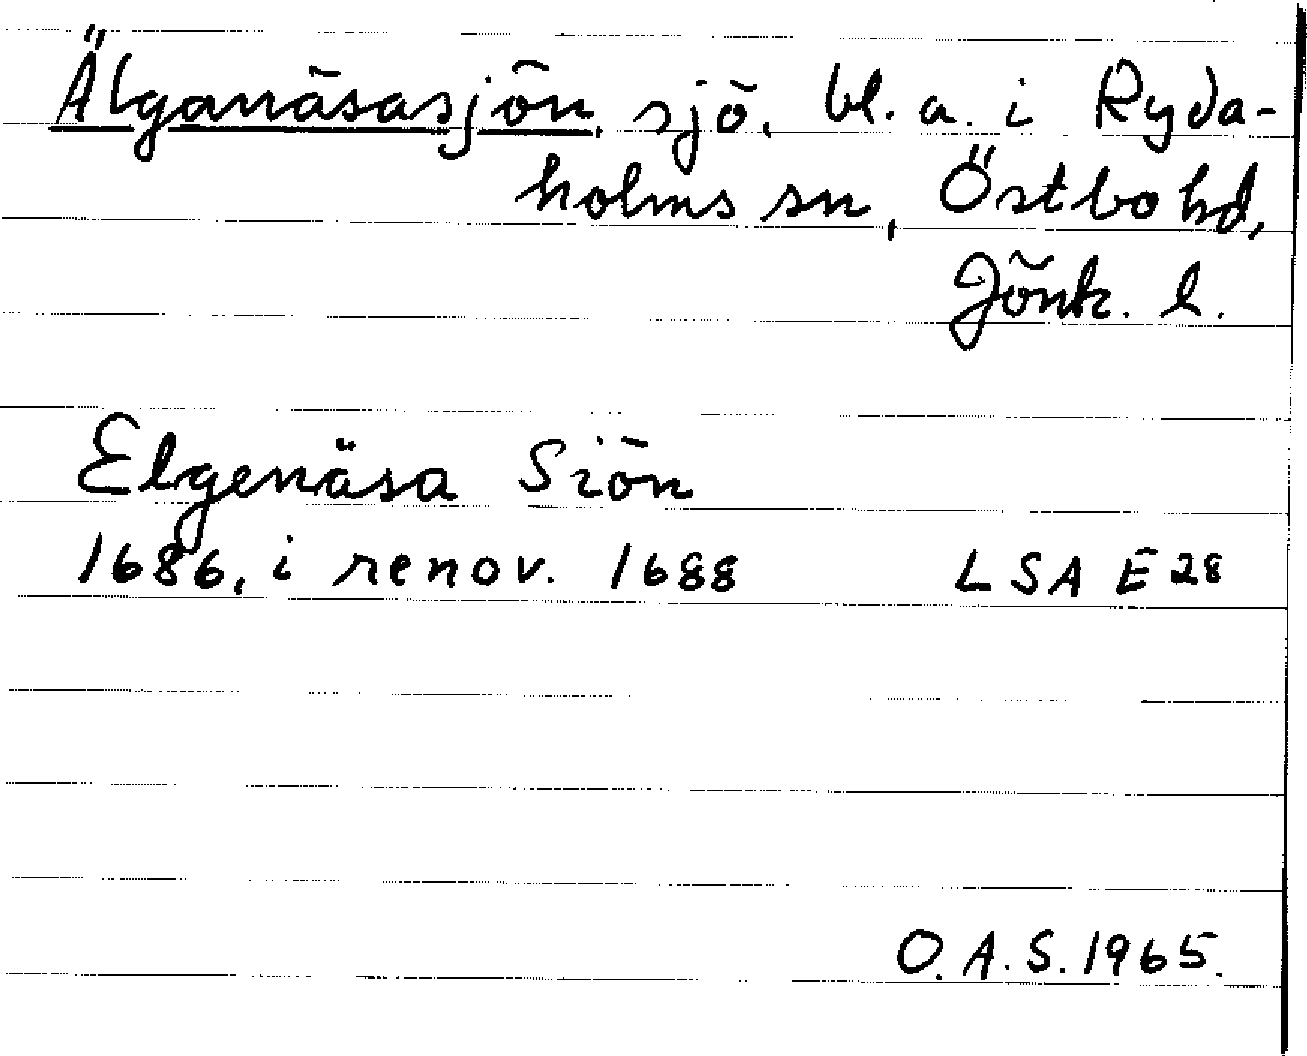 Älganäsasjön, sjö, bl. a. i Ryda-
holms sn, Östbo hd,
Jönk. l.
Elgenäsa Siön
1686, i renov. 1688 LSA E 28
O.A.S. 1965.